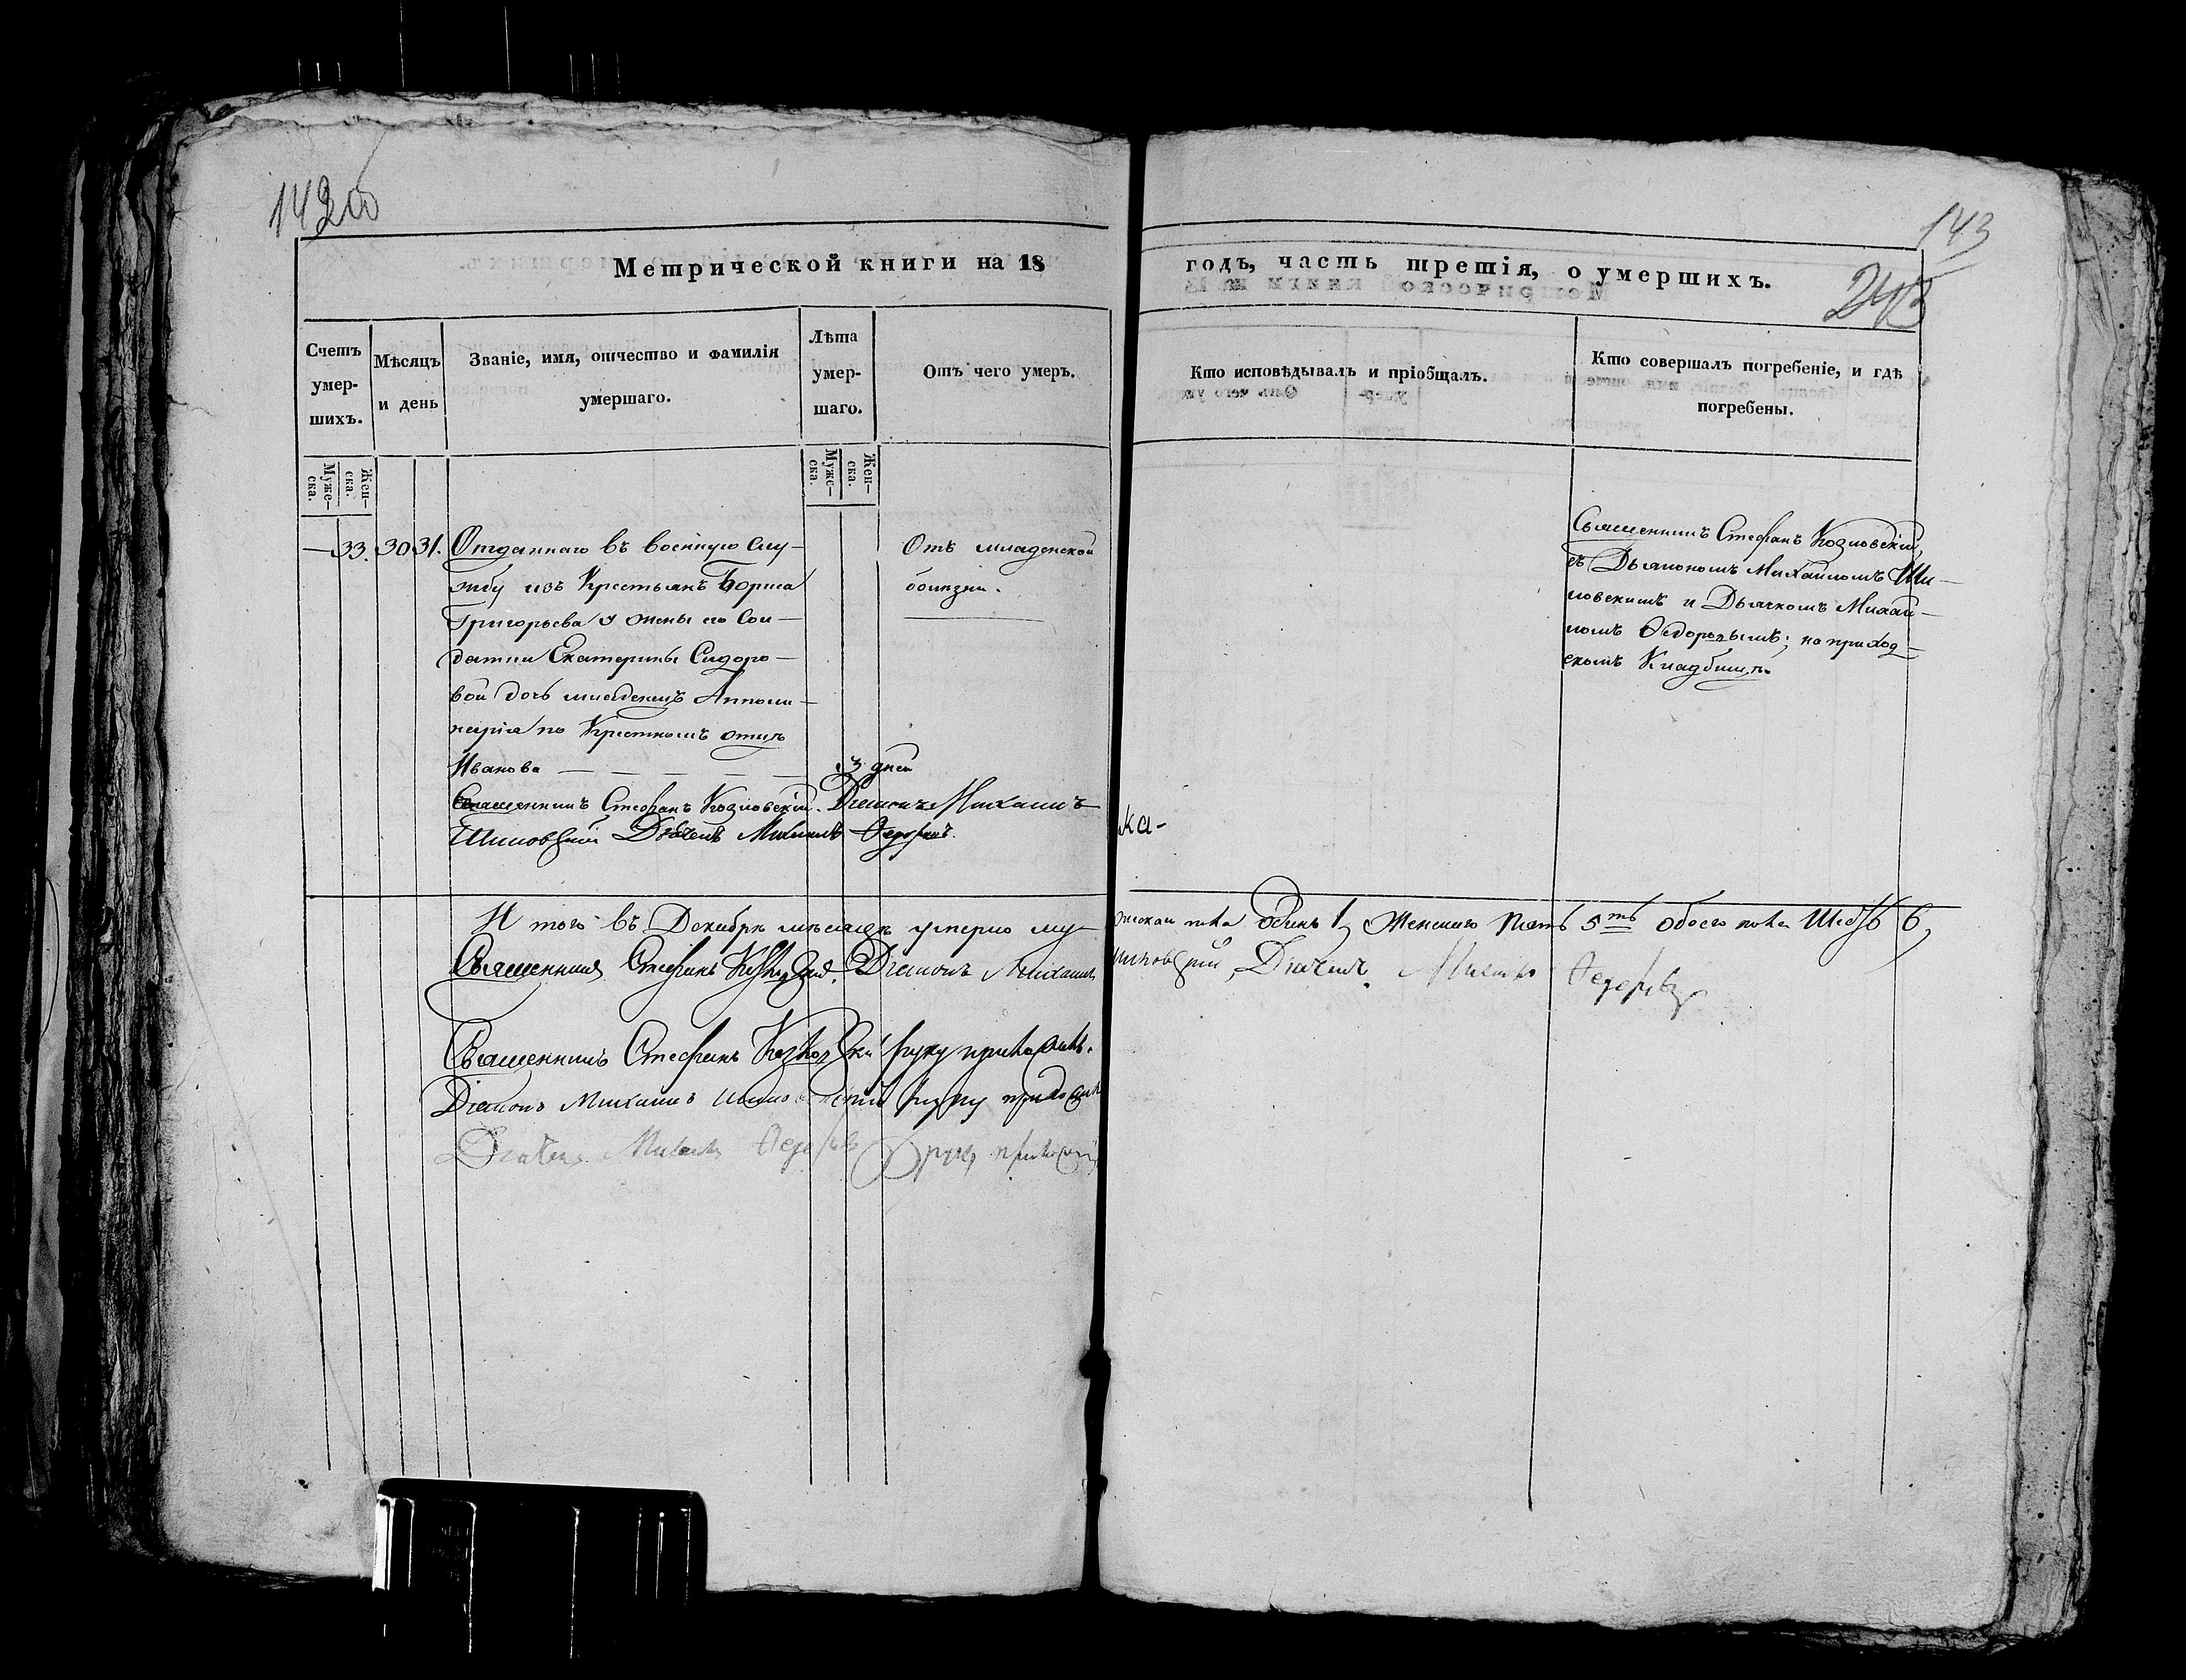 142об
143
243
Метрической книги на 18
годъ, часть третія, о умершихъ.
Счетъ умер-шихъ.
Мѣсяцъ и день
Званіе, имя, отчество и фамилія умершаго.
Лѣта умер-шаго.
Отъ чего умеръ.
Кто исповѣдывалъ и пріобщалъ.
Кто совершалъ погребеніе, и гдѣ погребены.
Муже-ска.
Жен-ска.
Муже-ска.
Жен-ска.
— 33. 30 31. Отданнаго въ военную слу-
жбу изъ Крестьянъ Бориса
Григорьева у жены его Сол-
датки Екатерины Сидоро-
вой дочь младенецъ Апполи-
нарія по Крестномъ отцѣ
Иванова — — — — — 3 дней
Отъ младенской
болѣзни.
Священникъ Стефанъ Козловскій,
съ Дьякономъ Михайломъ Ши-
ловскимъ и Дьячкомъ Михай-
ломъ Ѳедоровымъ; на приход-
скомъ Кладбищѣ.
Священникъ Стефанъ Козловскій. Діаконъ Михаилъ
Шиловскій Дьячекъ Михаилъ Ѳедоровъ.
ка-
И того въ Декабрѣ мѣсяцѣ умерло му-
жскаго пола одинъ 1, Женскаго Пять 5ть обоего пола Шесть 6,
Священникъ Стефанъ Козловскій. Діаконъ Михаилъ
Шиловскій, Дьячекъ Михаилъ Ѳедоровъ
Священникъ Стефанъ Козловскій руку приложилъ.
Діаконъ Михаилъ Шиловскій руку приложилъ
Дьячекъ Михаилъ Ѳедоровъ руку приложилъ